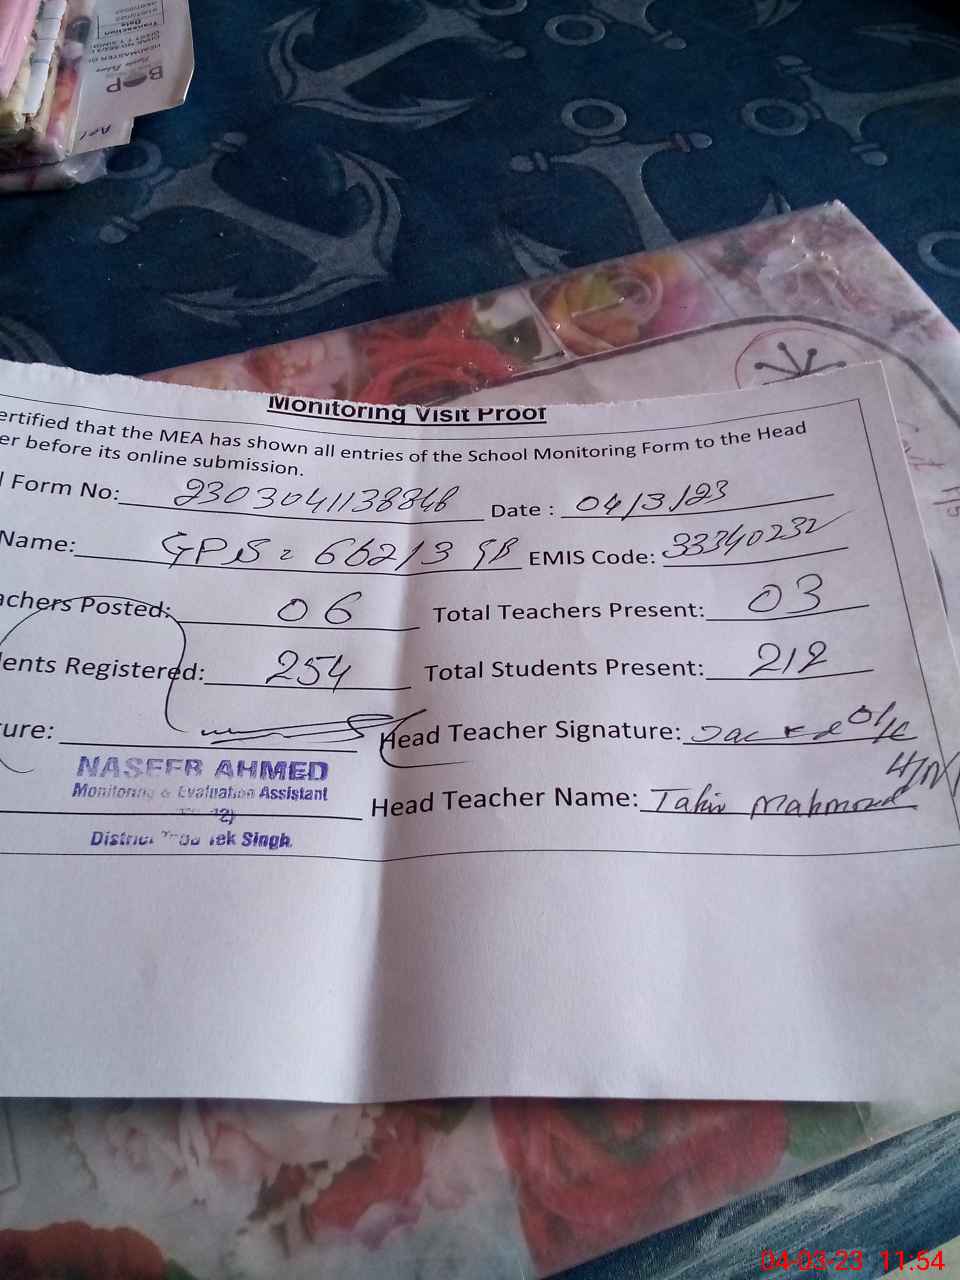 Monitoring Visit Proof
ertified that the MEA has shown all entries of the School Monitoring Form to the Head
er before its online submission.
Form No: Date : 04/3/23
Name: GPS 662/3 GB EMIS Code: 33340232
achers Posted: 06 Total Teachers Present: 03
ents Registered: 254 Total Students Present: 212
ure: Head Teacher Signature:
NASEER AHMED
Monitoring & Evaluation Assistant
Head Teacher Name: Tahir Mahmood
District Tek Singh.
04-03-23 11:54